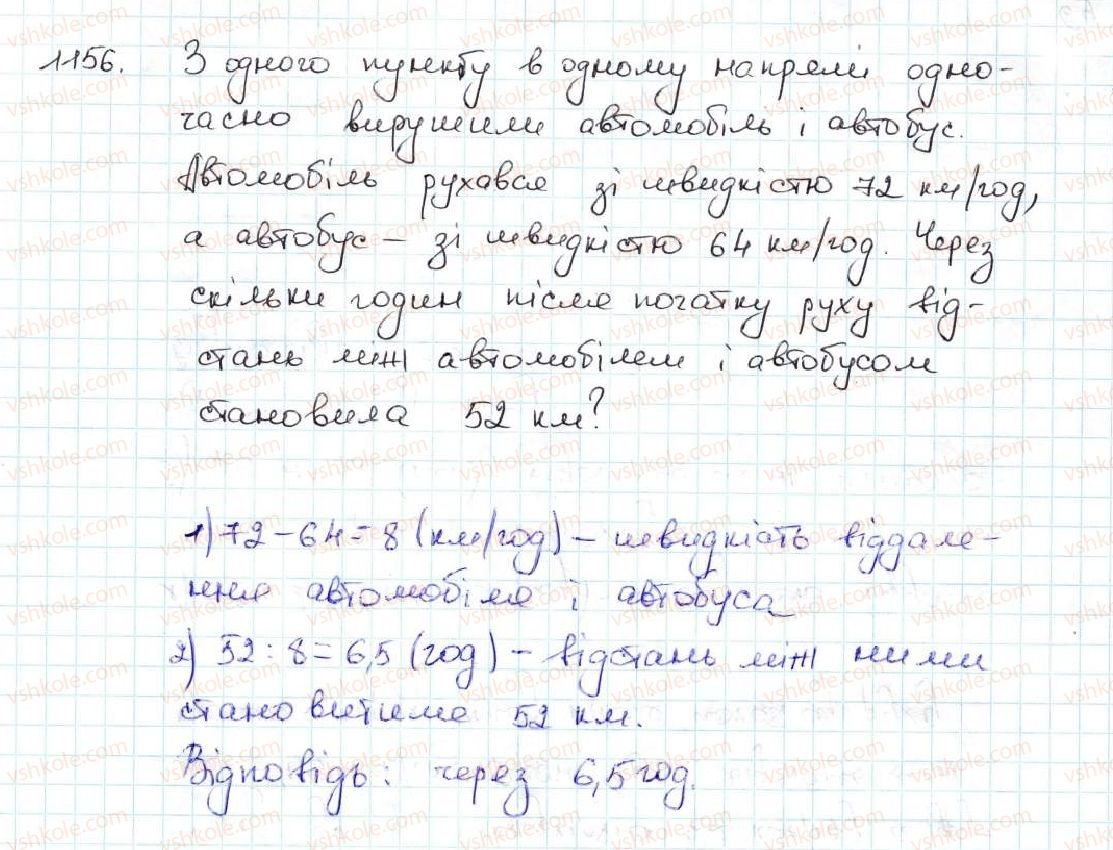 1156. З одного пункту в одному напрямі одно-
часно вирушили автомобіль і автобус.
Автомобіль рухався зі швидкістю 72 км/год,
а автобус – зі швидкістю 64 км/год. Через
скільки годин після початку руху від-
стань між автомобілем і автобусом
становила 52 км?
1) 72 – 64 = 8 (км/год) – швидкість віддале-
ння автомобіля і автобуса
2) 52 : 8 = 6,5 (год) – відстань між ними
становитиме 52 км.
Відповідь: через 6,5 год.